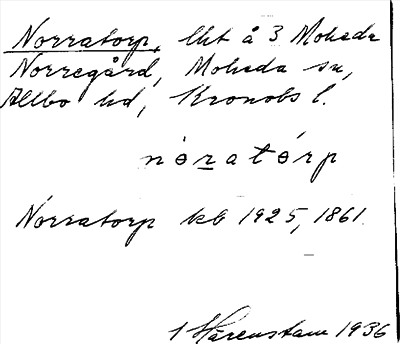 Norratorp, lht å 3 Moheda
Norregård, Moheda sn,
Allbo hd, Kronobs l.
nòratórp
Norratorp kb 1925, 1861.
1 Härenstam 1936